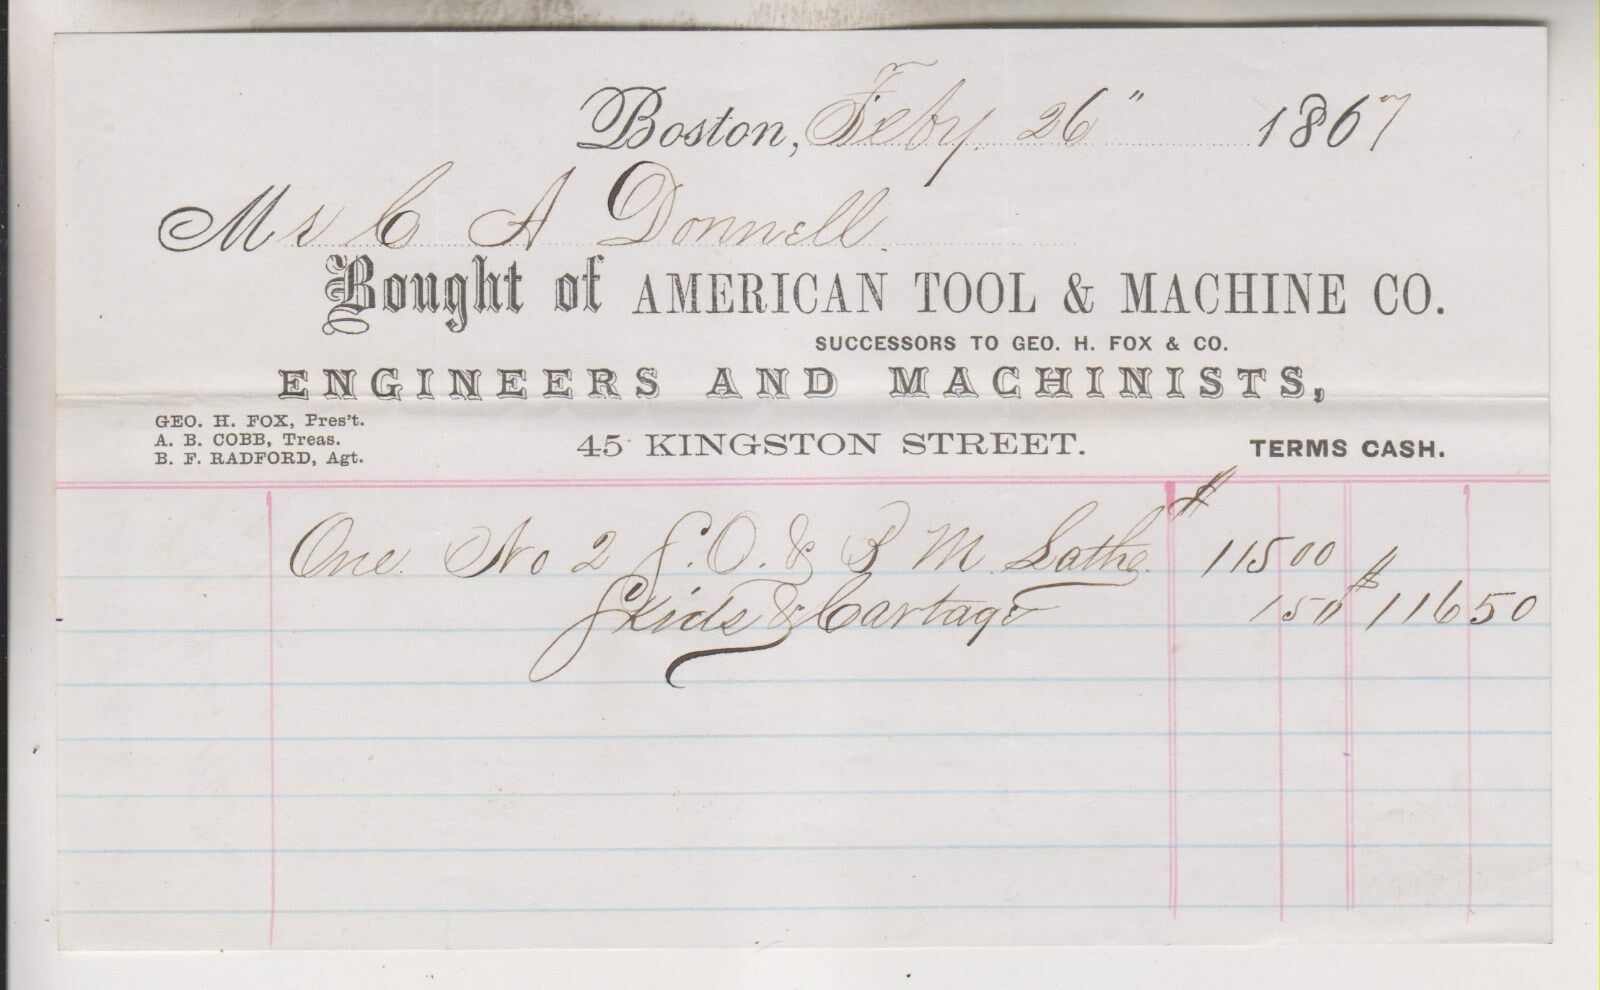 Boston, Feby. 26" 1867
Mr C A Donnell.
Bought of AMERICAN TOOL & MACHINE CO.
SUCCESSORS TO GEO. H. FOX & CO.
ENGINEERS AND MACHINISTS,
GEO. H. FOX, Pres't.
A. B. COBB, Treas.
B. F. RADFORD, Agt.
45 KINGSTON STREET.
TERMS CASH.
One No 2 S. O. & B M. Lathe. $ 115 00
Skids & Cartage 1 50 $ 116 50